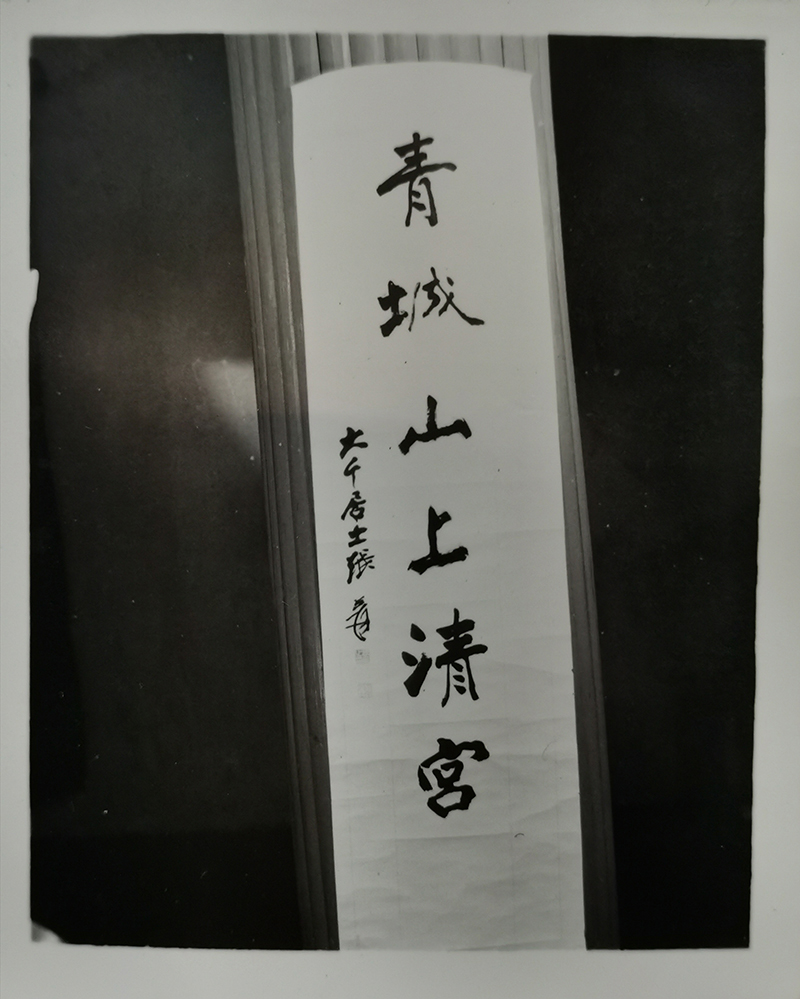 青城山上清宫
大千居士張爰